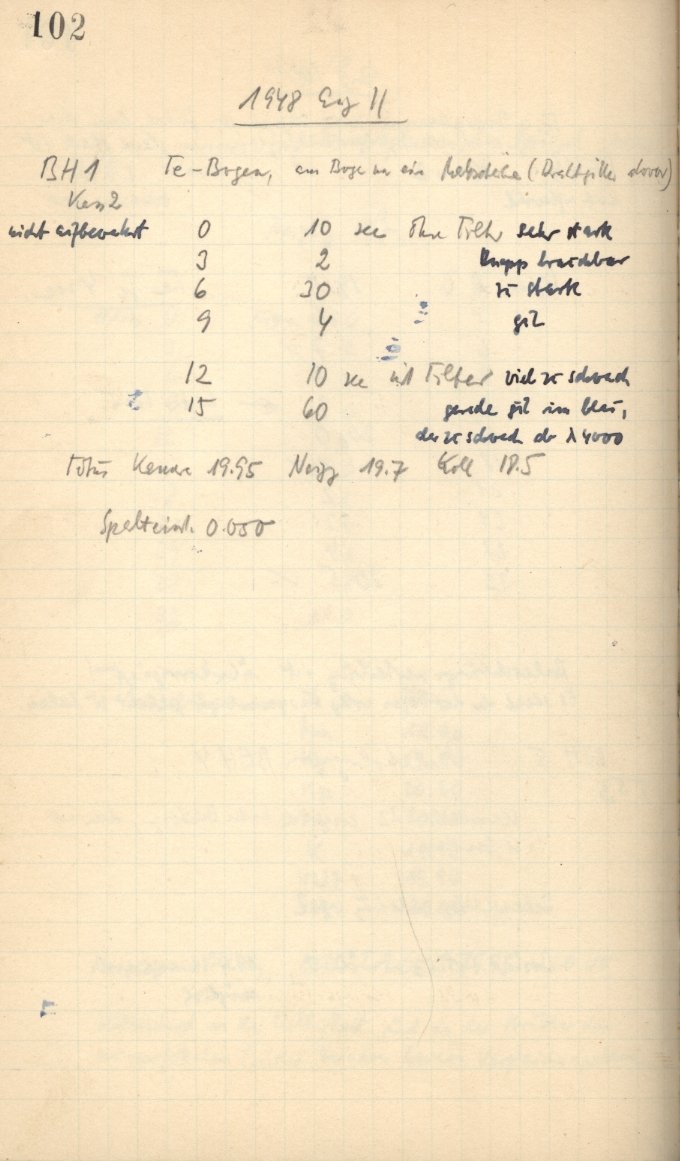 102
1948 Aug 11
BH1 Fe-Bogen, am Bogen nur ein (Drahtgitter davor)
Kass 2
nicht aufbewahrt 0 10 sec ohne Filter sehr stark
3 2 knapp brauchbar
6 30 zu stark
9 4 gut
12 10 sec mit Filter viel zu schwach
15 60 gerade gut im blau,
zu schwach ab λ 4000
Fokus Kamera 19.95 19.7 Koll 18.5
Spalteinst. 0.050